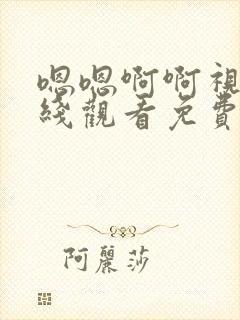 嗯嗯啊啊視
綫觀看免費
阿麗莎